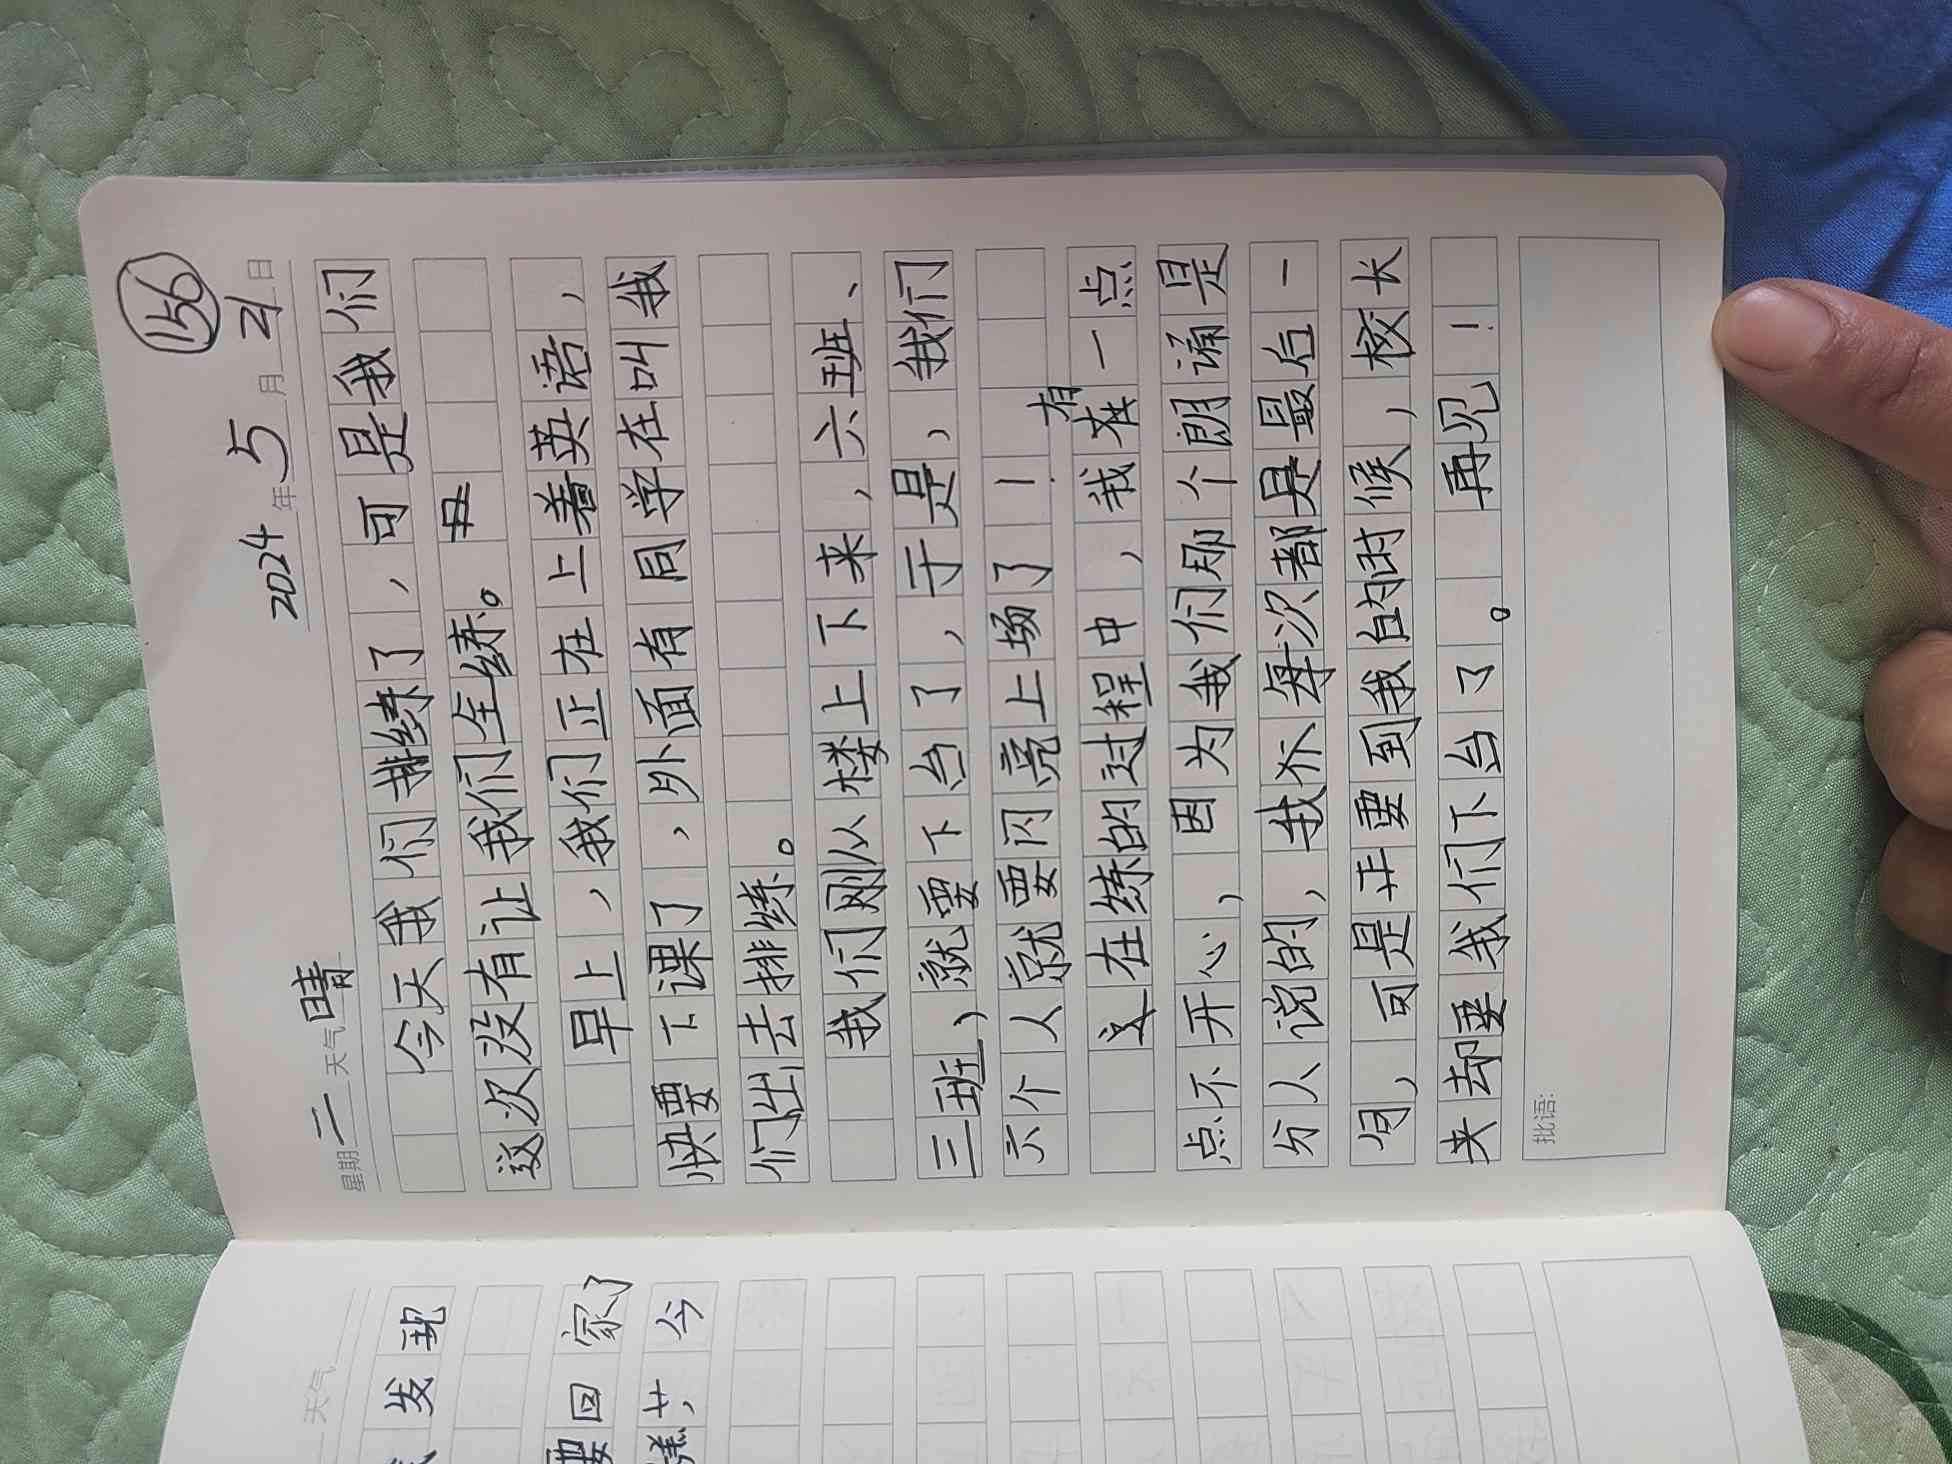 156
2024年5月21日
星期二 天气晴
今天我们排练了，可是我们
这次没有让我们全练。
早上，我们正在上着英语，
快要下课了，外面有同学在叫我
们出去排练。
我们刚从楼上下来，六班、
三班、就要下台了，于是，我们
六个人就要闪亮上场了！
这在练的过程中，我有一点
点不开心，因为我们那个朗诵是
分人说的，我每次都是最后一
句，可是正要到我的时候，校长
来却要我们下台了。再见！
批语:
天气
发现
要回家了
今